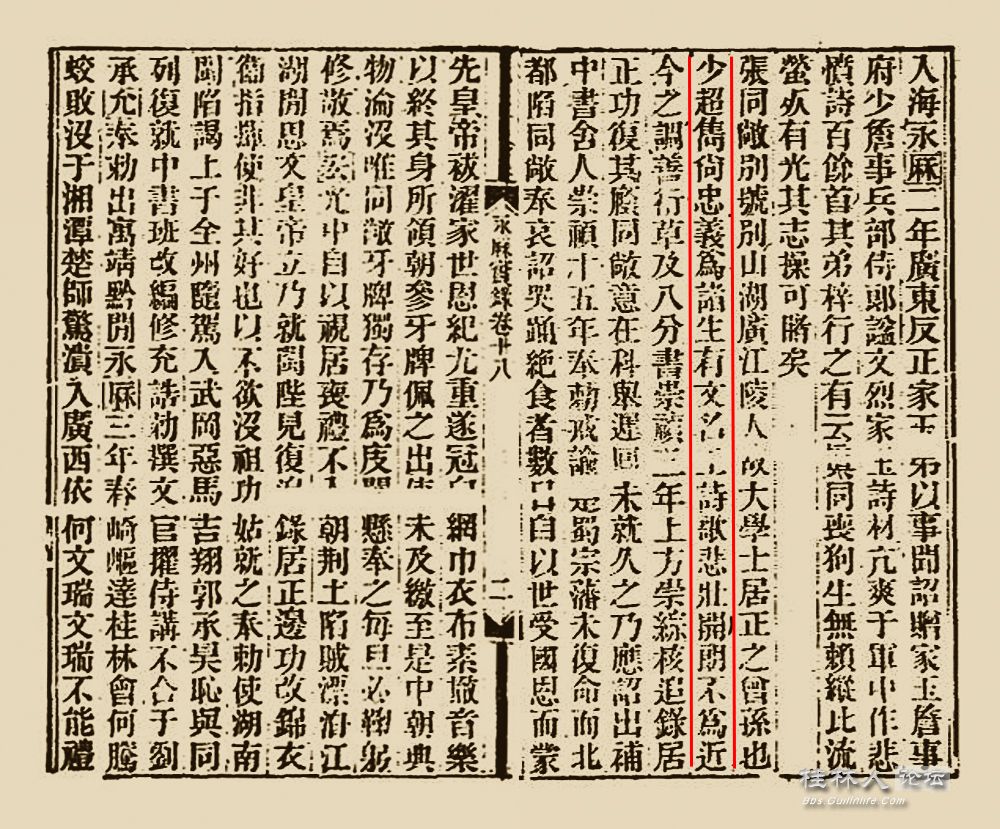 入海永厤二年廣東反正家玉弟以事聞詔贈家玉詹事
府少詹事兵部侍郎謚文烈家玉詩材亢爽于軍中作悲
憤詩百餘首其弟梓行之有云與同喪狗生無賴縱比流
螢死有光其志操可睹矣
張同敞別號別山湖廣江陵人故大學士居正之曾孫也
少超雋尚忠義為諸生有文名工詩歌悲壯開朗不為近
今之調善行草及八分書崇禎三年上方崇綜核追錄居
正功復其廕同敞意在科舉遲回未就久之乃應詔出補
中書舍人崇禎十五年奉勅戒諭楚蜀宗藩未復命而北
都陷同敞奉哀詔哭踊絕食者數日自以世受國恩而蒙
永厤實錄卷十八
二
先皇帝祓濯家世恩紀尤重遂冠白網巾衣布素撤音樂
以終其身所領朝參牙牌佩之出使未及繳至是中朝典
物淪沒唯同敞牙牌獨存乃為庋閣懸奉之每旦必鞠躬
修敬焉弘光中自以視居喪禮不入朝荆土陷賊漂泊江
湖閒思文皇帝立乃就閩陛見復追錄居正邊功改錦衣
衞指揮使非其好也以不欲沒祖功姑就之奉勅使湖南
閩陷謁上于全州隨駕入武岡惡馬吉翔郭承昊恥與同
列復就中書班改編修充誥勅撰文官擢侍講不合于劉
承允奉勅出寓靖黔閒永厤三年春崎嶇達桂林會何騰
蛟敗沒于湘潭楚師驚潰入廣西依何文瑞文瑞不能禮
桂林人论坛
Bbs.Guilinlife.Com